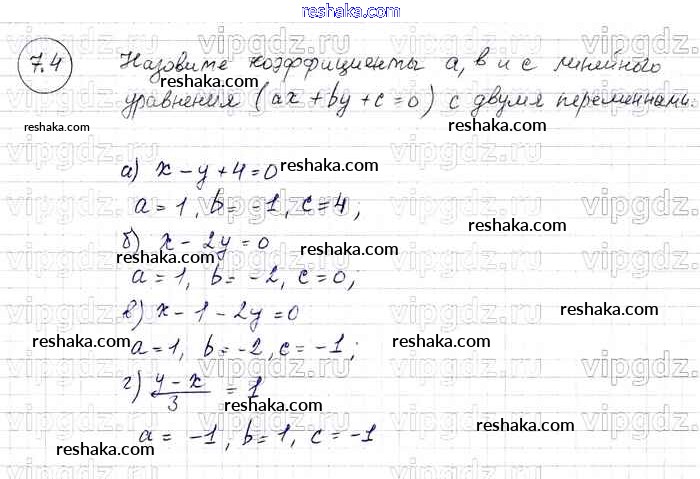 reshaka.com
7.4
Назовите коэффициенты a, b и c линейного
reshaka.com
уравнения (ax + by + c = 0) с двумя переменными.
reshaka.com
reshaka.com
reshaka.com
а) x - y + 4 = 0
reshaka.com
a = 1, b = -1, c = 4;
reshaka.com
reshaka.com
б) x - 2y = 0
reshaka.com
reshaka.com
a = 1, b = -2, c = 0;
в) x - 1 - 2y = 0
reshaka.com
reshaka.com
a = 1, b = -2, c = -1;
reshaka.com
г) (y - x)/3 = 1
reshaka.com
reshaka.com
a = -1, b = 1, c = -1
reshaka.com
reshaka.com
vipgdz.ru